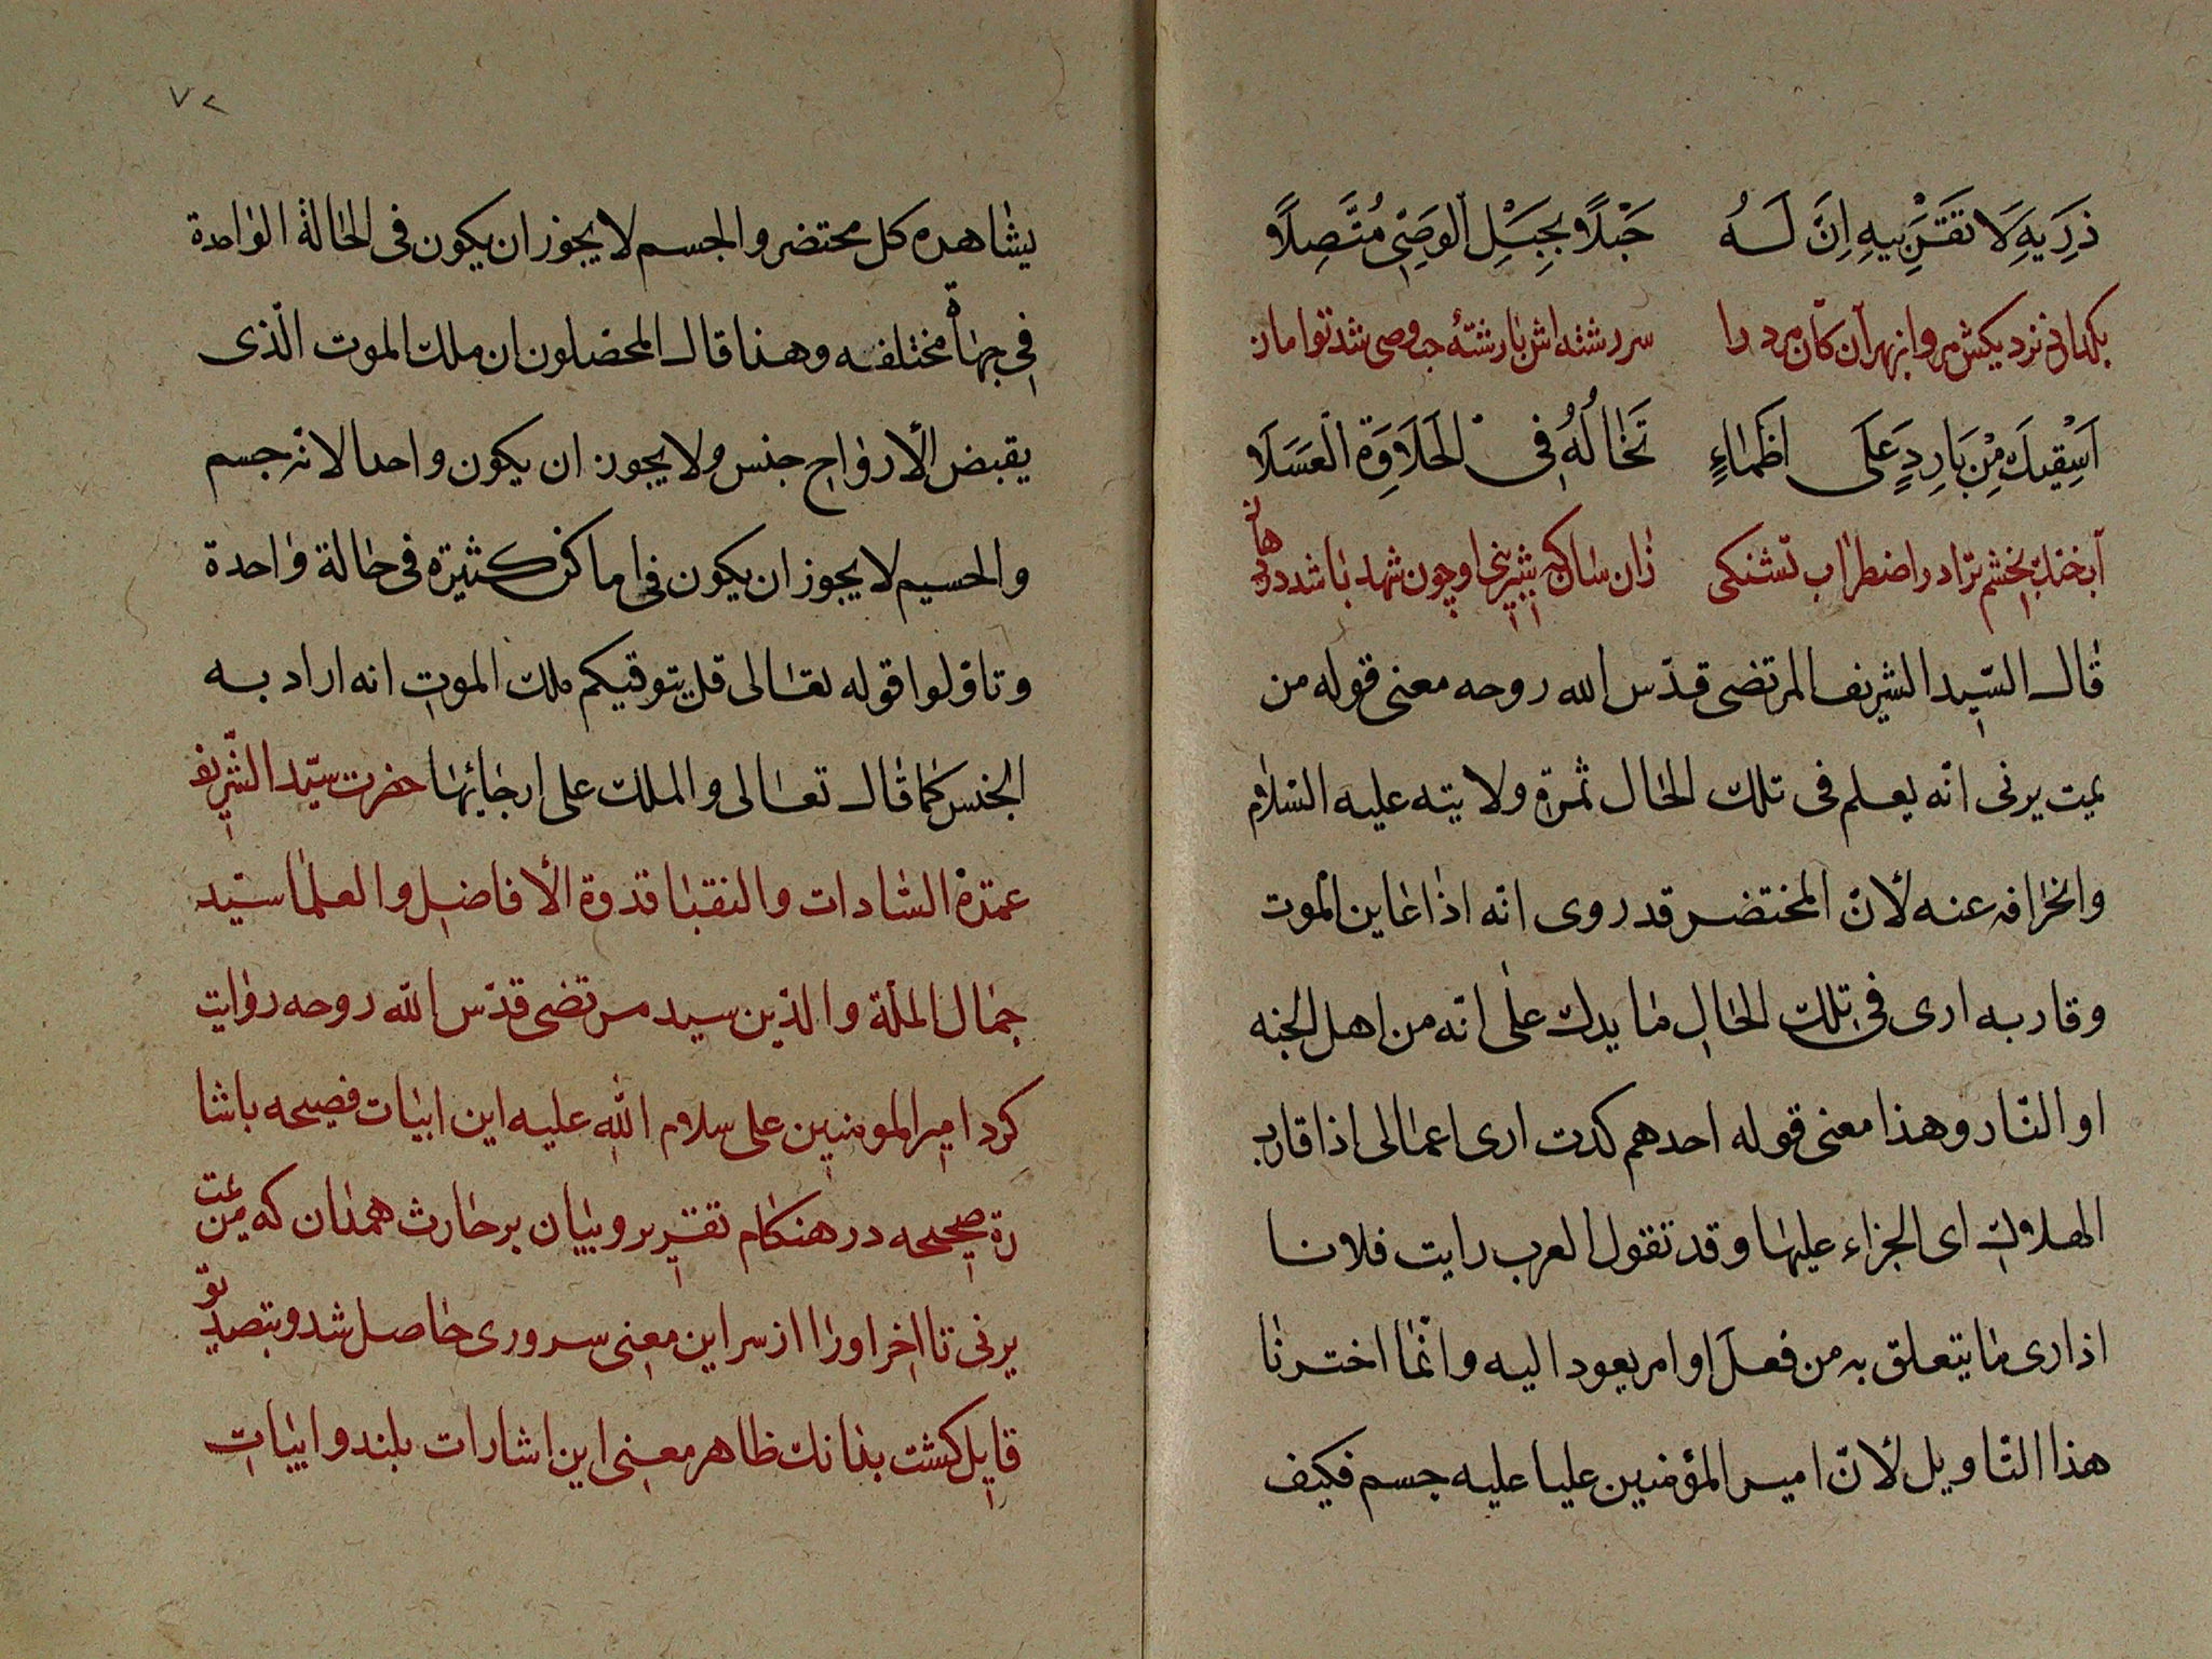 ذَرِيهِ لَا تَقْرَبِيهِ اِنَّ لَهُ حَبْلًا بِحَبْلِ الوَصِيِّ مُتَّصِلًا
بکذارى نزديكش مرو از بهر آن كان مرد را سر رشته اش با رشتهٔ حب وصى شد توامان
اَسْقِيكَ مِنْ بَارِدٍ عَلَى اظَمَاءٍ تَخَالُهُ فِى الحَلَاوَةِ الْعَسَلَا
آبخنك بخشم ترا در اضطراب تشنكى زان سان كه شيرينى او چون شهد باشد در دهان
قال السّيد الشريف المرتضى قدّس الله روحه معنى قوله من
يمت يرنى انّه يعلم فى تلك الحال ثمرة ولايته عليه السّلام
وانحرافه عنه لأنّ المختضر قد روى انّه اذا عاين الموت
وقاربه ارى فى تلك الحال ما يدلّ على انّه من اهل الجنه
او النّار وهذا معنى قوله احدهم كدت ارى اعمالى اذا قارب
الهلاك اى الجزاء عليها وقد تقول العرب رايت فلانا
اذا رى ما يتعلق به من فعل او امر يعود اليه وانّما اخترنا
هذا التّاويل لأنّ امير المؤمنين عليا عليه جسم فكيف
٧٢
يشاهده كل محتضر والجسم لا يجوز ان يكون فى الحالة الواحدة
فى جهاة مختلفه وهذا قال المحصلون ان ملك الموت الّذى
يقبض الأرواح جنس ولا يجوز ان يكون واحدا لانّه جسم
والجسيم لا يجوز ان يكون فى اماكن كثيرة فى حالة واحدة
وتاوّلوا قوله تعالى قل يتوفيكم ملك الموت انه اراد به
الجنس كما قال تعالى والملك على ارجائها حضرت سيّد الشّريف
عمدة السّادات والنقبا قدوة الأفاضل والعلما سيّد
جمال الملّة والدّين سيد مرتضى قدّس الله روحه روايت
كرد امير المومنين على سلام الله عليه اين ابيات فصيحه باشا
رة صحيحه در هنكام تقرير و بيان بر حارث همدان كه من يمت
يرنى تا اخر او را از سر اين معنى سرورى حاصل شد و بتصديق
قايل كشت بدانك ظاهر معنى اين اشارات بلند و ابيات